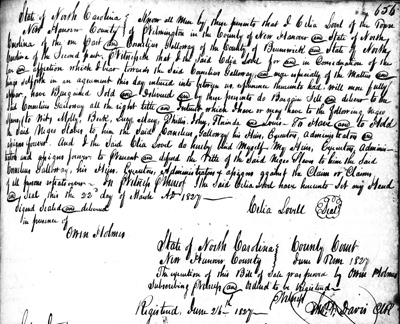 656
State of North Carolina Know all Men by these presents that I Celia Lovel of the Town
New Hanover County of Wilmington in the County of New Hanover and State of North
Carolina of the one Part and Cornelius Galloway of the County of Brunswick and State of North
Carolina of the Second part Witnesseth that I the Said Celia Lovel for and in Consideration of the
love and affection which I bear towards the Said Cornelius Galloway and more especially of the Matters and
things set forth in an agreement this day entered into between us whereunto reference hereunto had will more fully
appear, have Bargained Sold and Delivered and by these presents do Bargain Sell and deliver to the
said Cornelius Galloway all the right title and Interest which I have or may have to the following negro
Slaves to wit, Milly, Beck, Lucy, Phillis, and To Have and to Hold
the Said Negro Slaves to him the Said Cornelius Galloway his Heirs, Executors, Administrators and
assigns forever. And I the Said Celia Lovel do hereby bind Myself My Heirs, Executors, Adminis-
trators and assigns forever to Warrant and defend the Title of the Said Negro Slaves to him the Said
Cornelius Galloway, his Heirs, Executors, Administrators & assigns against the Claim or Claims
of all persons whatsoever. In Witness Whereof I the Said Celia Lovel have hereunto Set my Hand
and Seal this the 22nd day of March AD 1827
Signed Sealed and delivered Celia Lovell Seal
In presence of
Owen Holmes
State of North Carolina County Court
New Hanover County June Term 1827
The execution of this Bill of Sale was proved by Owen Holmes
Subscribing Witness and ordered to be Registered
Witness
Registered, June 26th 1827 Thos. F. Davis Clk